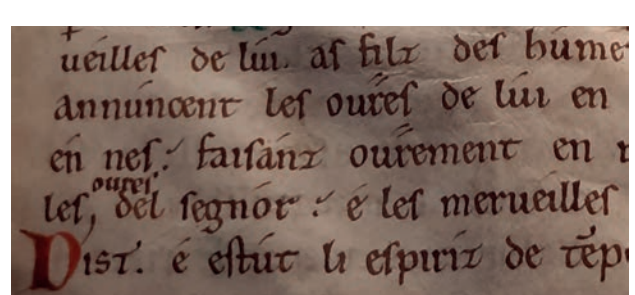 ueilles de lui. as filz des hume
annuncent les oures de lui en
en nes. faisanz ourement en
les, oures del segnor. é les merueilles
Dist. é estut li espiriz de temp